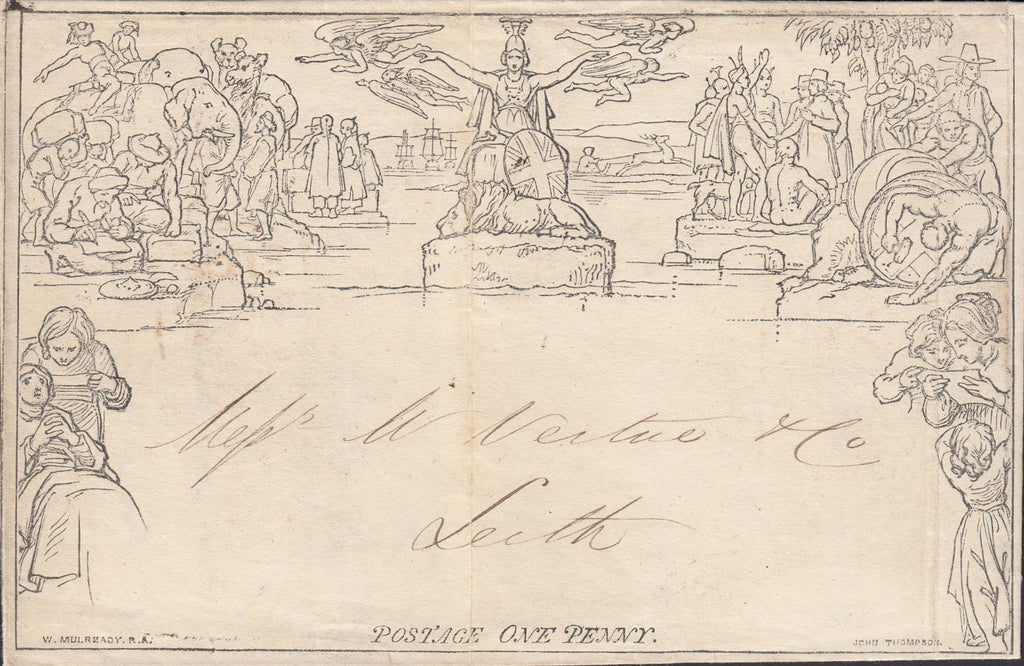 Messrs W Vertue & Co
Leith
W. MULREADY. R.A.
POSTAGE ONE PENNY.
JOHN THOMPSON.